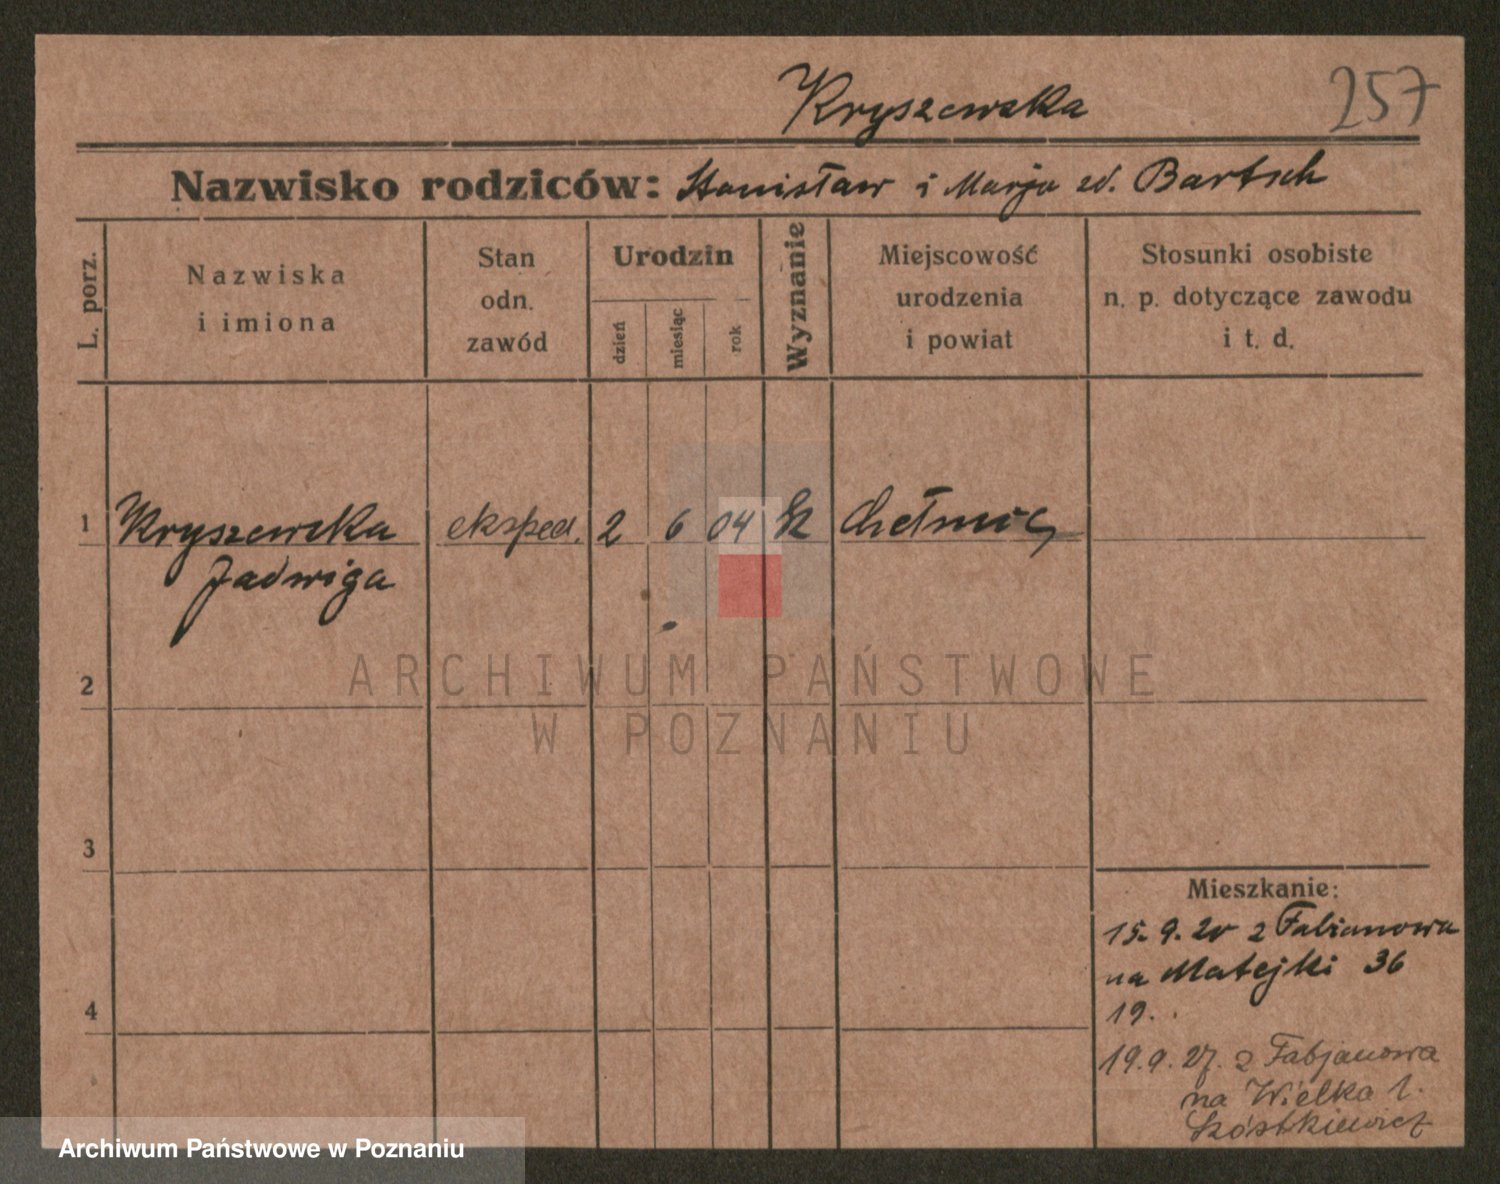 Kryszewska
257
Nazwisko rodziców: Stanisław i Marja zd. Bartsch
L. porz.
Nazwiska
i imiona
Stan
odn.
zawód
Urodzin
dzień
miesiąc
rok
Wyznanie
Miejscowość
urodzenia
i powiat
Stosunki osobiste
n. p. dotyczące zawodu
i t. d.
1 Kryszewska eksped. 2 6 04
Jadwiga
2
3
4
ARCHIWUM PAŃSTWOWE
W POZNANIU
Mieszkanie:
15. 9. z Fabianowa
na Matejki 36
19.
19.9.27. z Fabjanowa
na Wielka 1.
Szóstkiewicz
Archiwum Państwowe w Poznaniu